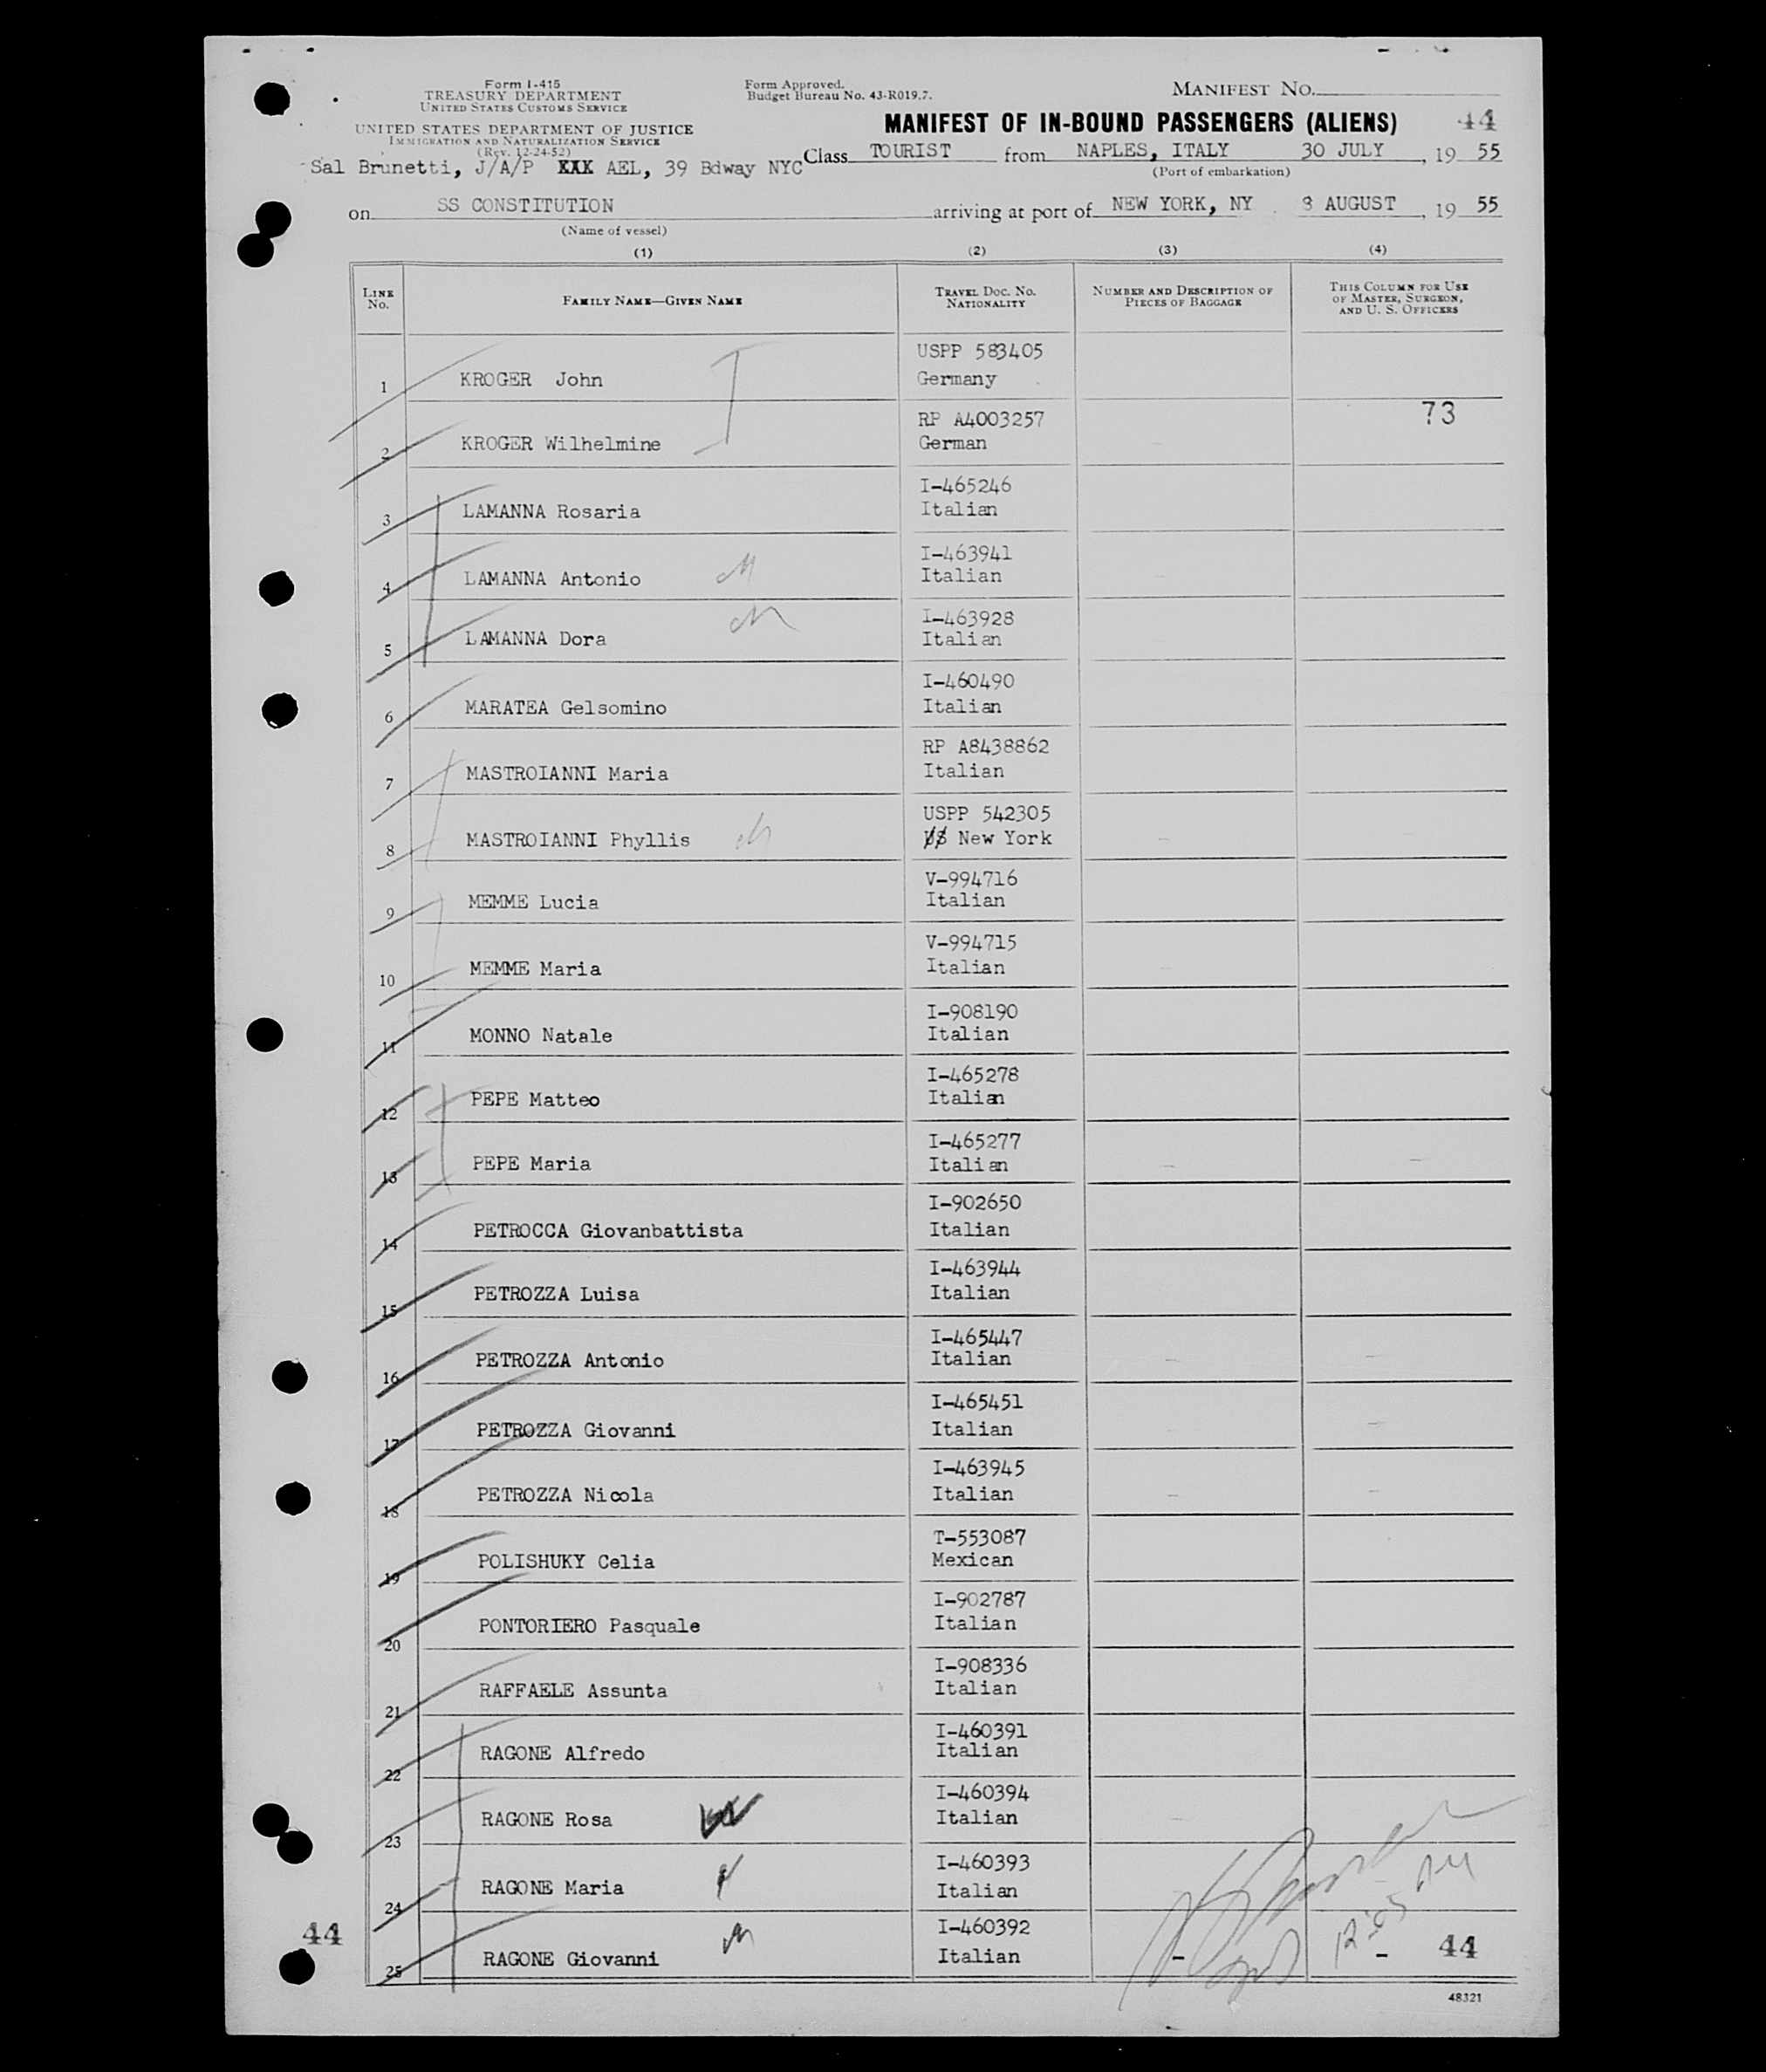 Form I-415
TREASURY DEPARTMENT
UNITED STATES CUSTOMS SERVICE
UNITED STATES DEPARTMENT OF JUSTICE
IMMIGRATION AND NATURALIZATION SERVICE
(Rev. 12-24-52)
Form Approved.
Budget Bureau No. 43-R019.7.
MANIFEST NO.
MANIFEST OF IN-BOUND PASSENGERS (ALIENS) 44
Sal Brunetti, J/A/P XXX AEL, 39 Bdway NYC Class TOURIST from NAPLES, ITALY 30 JULY, 19 55
(Port of embarkation)
on SS CONSTITUTION arriving at port of NEW YORK, NY 8 AUGUST, 19 55
(Name of vessel)
(1) (2) (3) (4)
LINE No. FAMILY NAME—GIVEN NAME TRAVEL DOC. NO. NATIONALITY NUMBER AND DESCRIPTION OF PIECES OF BAGGAGE THIS COLUMN FOR USE OF MASTER, SURGEON, AND U. S. OFFICERS
USPP 583405
1 KROGER John Germany
RP A4003257 73
2 KROGER Wilhelmine German
I-465246
3 LAMANNA Rosaria Italian
I-463941
4 LAMANNA Antonio Italian
I-463928
5 LAMANNA Dora Italian
I-460490
6 MARATEA Gelsomino Italian
RP A8438862
7 MASTROIANNI Maria Italian
USPP 542305
8 MASTROIANNI Phyllis New York
V-994716
9 MEMME Lucia Italian
V-994715
10 MEMME Maria Italian
I-908190
11 MONNO Natale Italian
I-465278
12 PEPE Matteo Italian
I-465277
13 PEPE Maria Italian
I-902650
14 PETROCCA Giovanbattista Italian
I-463944
15 PETROZZA Luisa Italian
I-465447
16 PETROZZA Antonio Italian
I-465451
17 PETROZZA Giovanni Italian
I-463945
18 PETROZZA Nicola Italian
T-553087
19 POLISHUKY Celia Mexican
I-902787
20 PONTORIERO Pasquale Italian
I-908336
21 RAFFAELE Assunta Italian
I-460391
22 RAGONE Alfredo Italian
I-460394
23 RAGONE Rosa Italian
I-460393
24 RAGONE Maria Italian
44 I-460392
25 RAGONE Giovanni Italian - - 44
48321